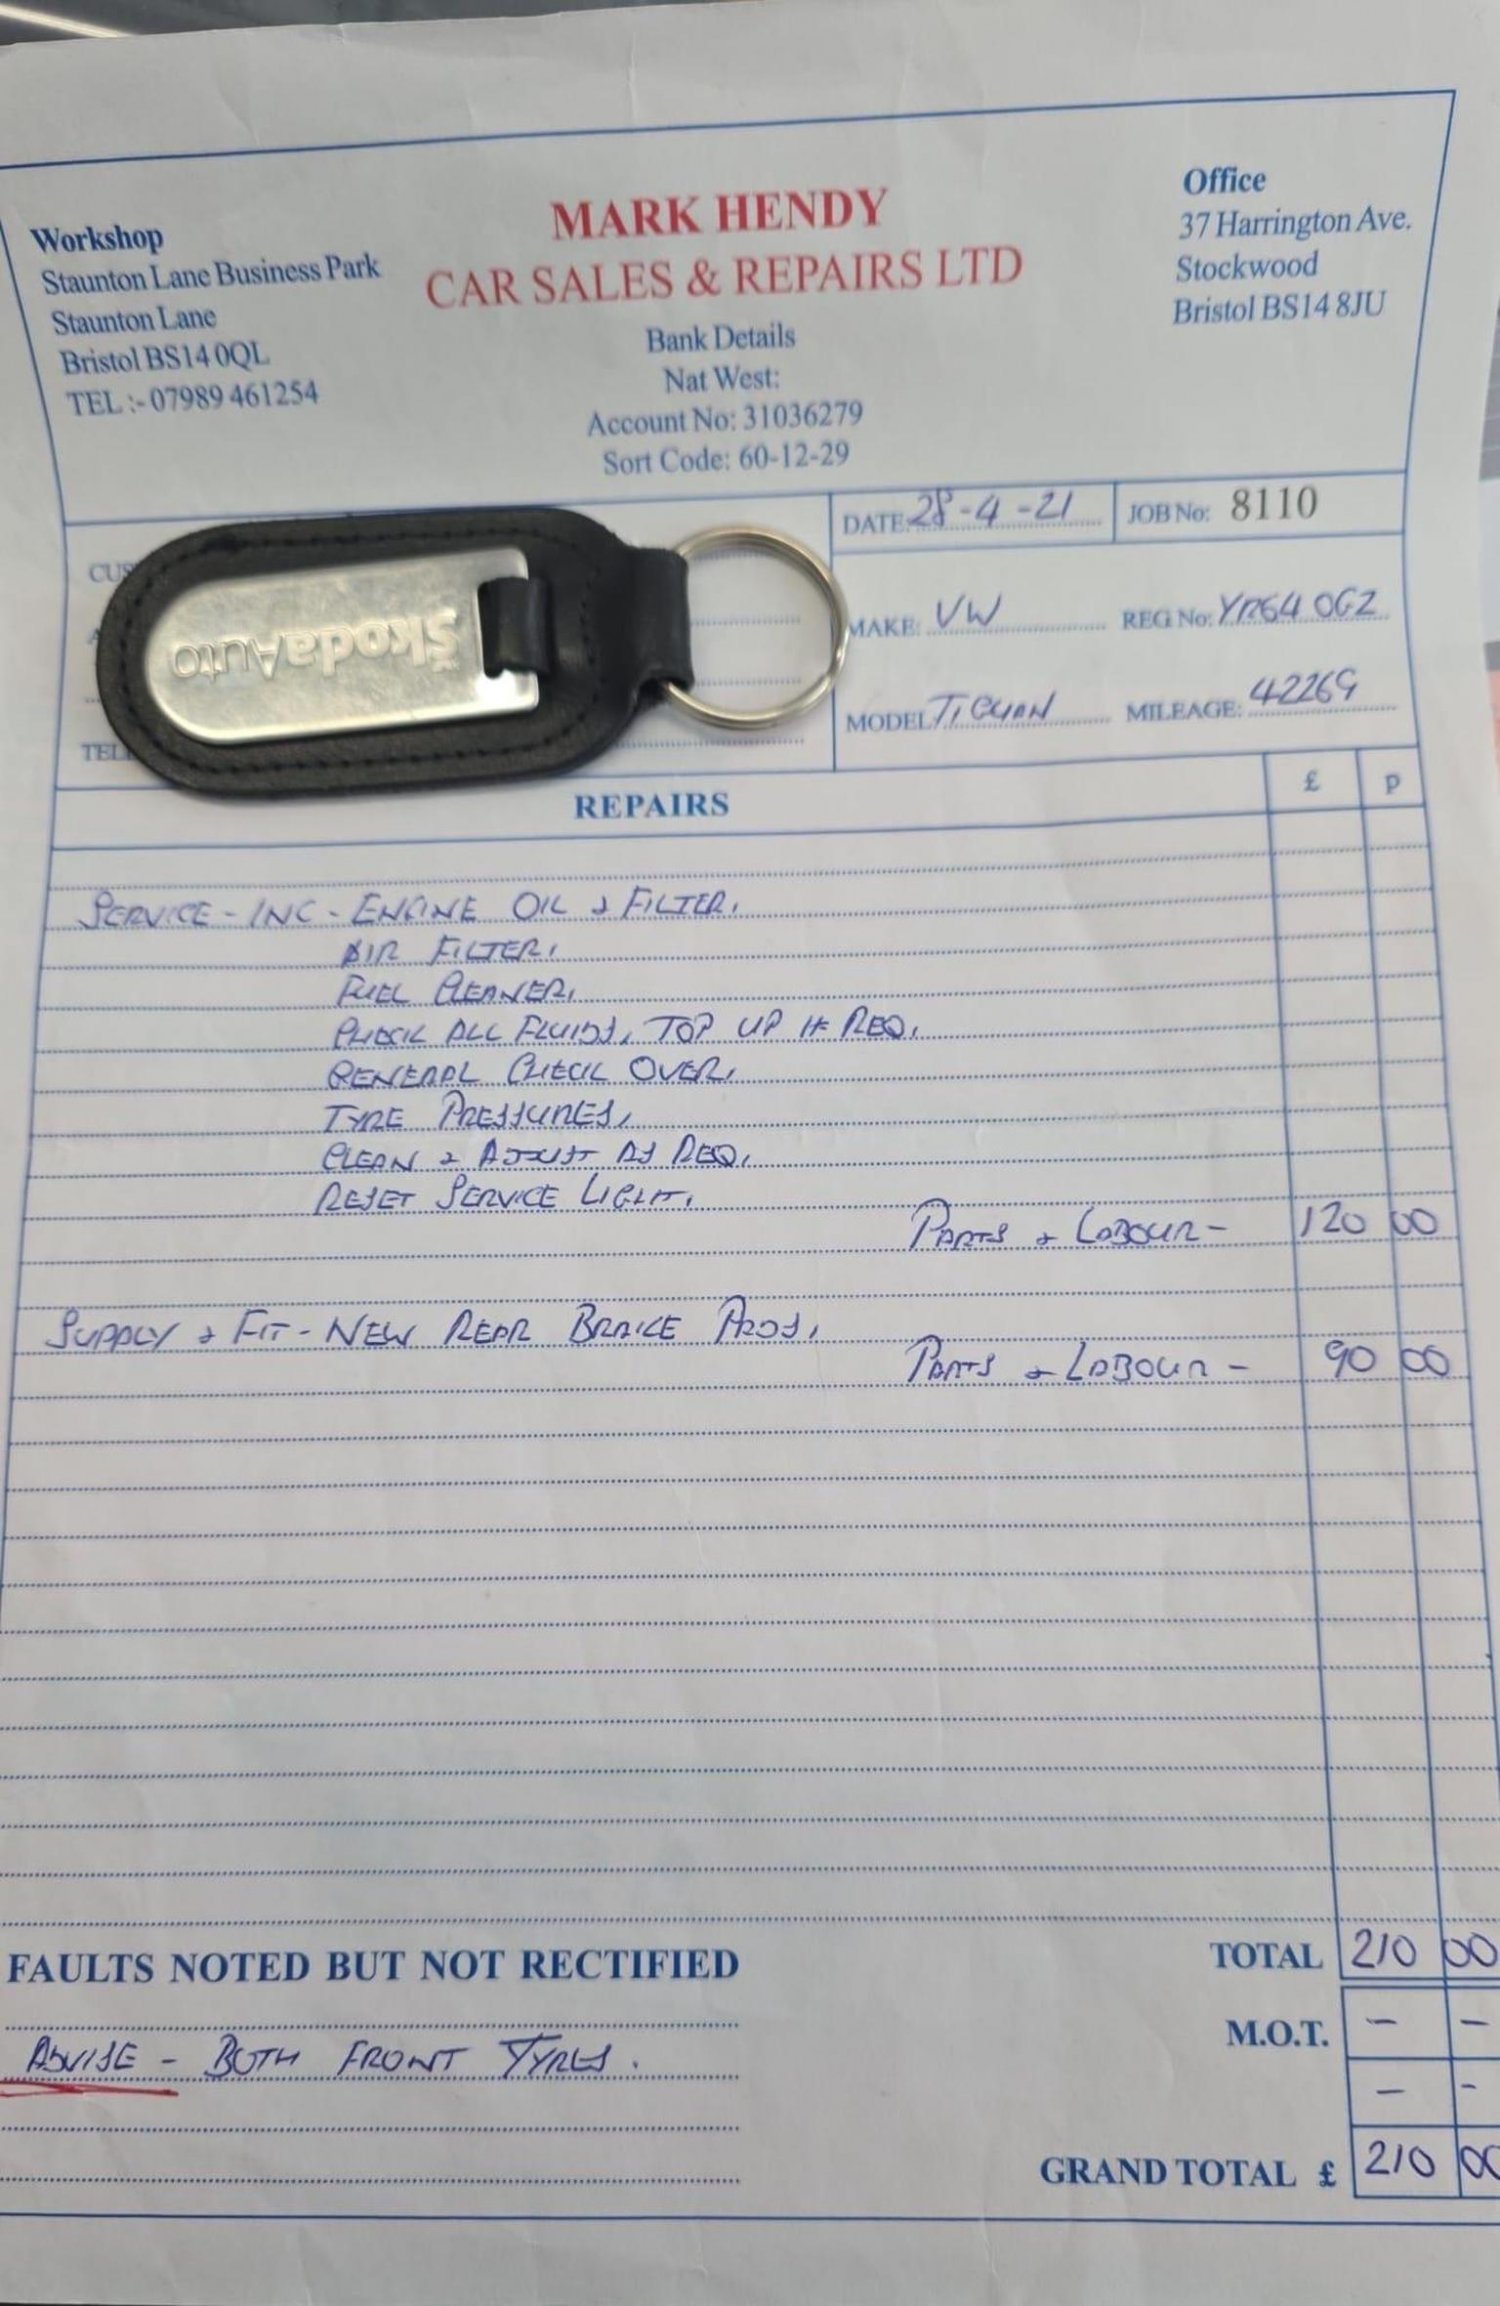 Workshop
Staunton Lane Business Park
Staunton Lane
Bristol BS14 0QL
TEL :- 07989 461254
MARK HENDY
CAR SALES & REPAIRS LTD
Bank Details
Nat West:
Account No: 31036279
Sort Code: 60-12-29
Office
37 Harrington Ave.
Stockwood
Bristol BS14 8JU
DATE: 28-4-21 JOB No: 8110
ŠkodaAuto
MAKE: VW REG No: YR64 OGZ
MODEL TIGUAN MILEAGE: 42269
REPAIRS £ p
SERVICE - INC - ENGINE OIL & FILTER.
AIR FILTER.
FUEL CLEANER.
CHECK ALL FLUIDS, TOP UP IF REQ.
GENERAL CHECK OVER.
TYRE PRESSURES.
CLEAN & ADJUST AS REQ.
RESET SERVICE LIGHT.
PARTS & LABOUR - 120 00
SUPPLY & FIT - NEW REAR BRAKE PADS.
PARTS & LABOUR - 90 00
FAULTS NOTED BUT NOT RECTIFIED
ADVISE - BOTH FRONT TYRES.
TOTAL 210 00
M.O.T. - -
- -
GRAND TOTAL £ 210 00